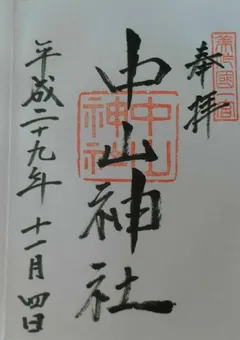 奉拝
中山神社
中山神社
平成二十九年 十一月 四日